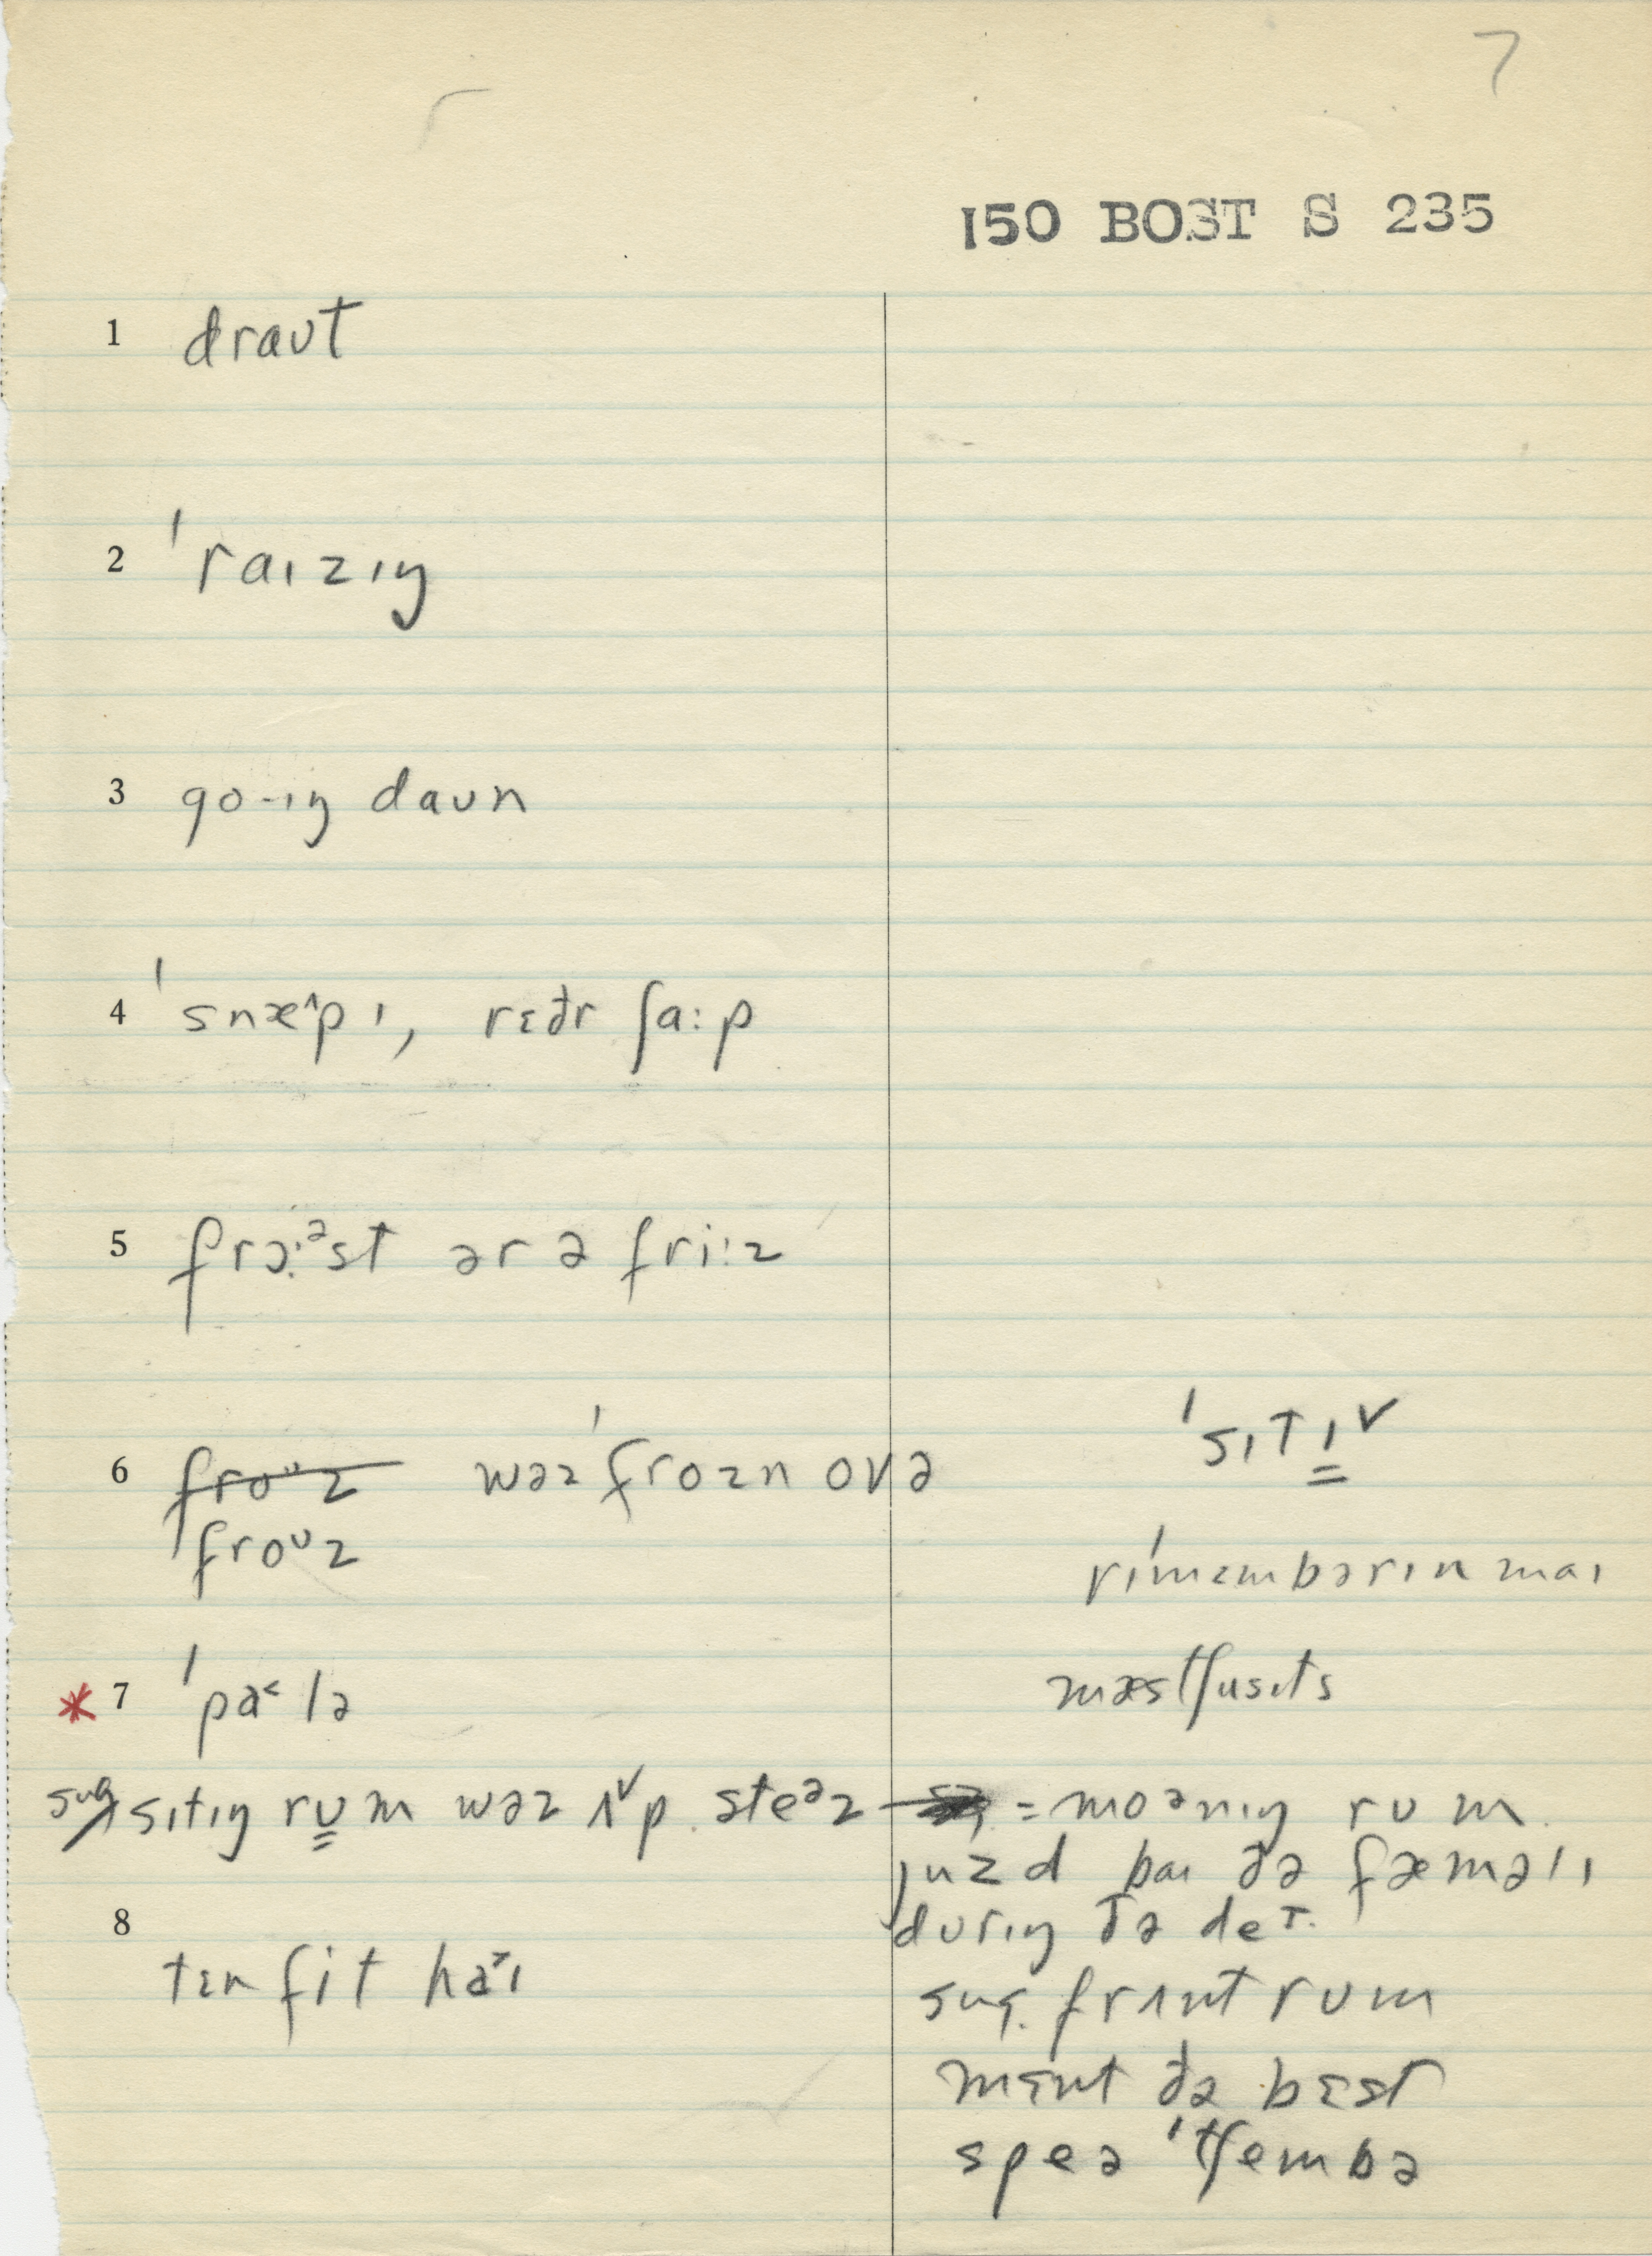 7
150 BOST S 235
1 draʊt
2 ˈraɪzɪŋ
3 go-ɪŋ daʊn
4 ˈsnæ^pɪ, rɛðr ʃa:p
5 frɔ:ᵊst ər ə fri:z
6 froᶷz wəz ˈfrozn ovə
froᶷz
ˈsɪtɪ̳ˇ
rɪˈmɛmbərɪn maɪ
* 7 ˈpa˂lə
mæstʃusɪts
sug sɪtɪŋ rʊ̳m wəz ʌˇp steᵊz = moᵊnɪŋ rʊm
juzd baɪ ðə fæməlɪ
8 durɪŋ ðə de
tɛn fit ha˃ɪ
sug. frʌnt rʊm
mɛnt ðə bɛst
speə ˈtʃembə